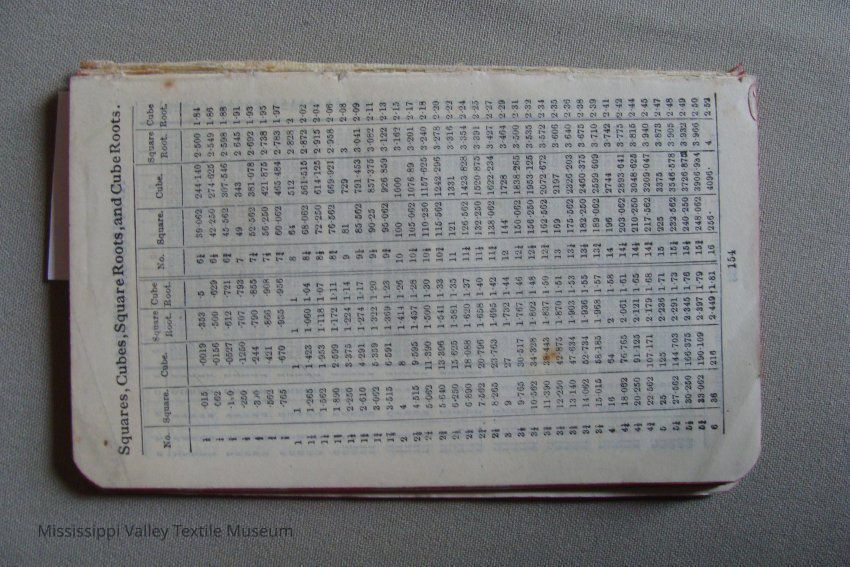 Squares, Cubes, Square Roots, and Cube Roots.
No. Square. Cube. Square Root. Cube Root. No. Square. Cube. Square Root. Cube Root.
⅛ ·015 ·0019 ·353 ·5 6¼ 39·062 244·140 2·500 1·84
¼ ·062 ·0156 ·500 ·629 6½ 42·250 274·625 2·549 1·86
⅜ ·0527 ·612 ·721 6¾ 45·562 307·546 2·598 1·88
½ ·250 ·1250 ·707 ·793 7 49 343 2·645 1·91
⅝ ·244 ·790 ·855 7¼ 52·562 381·078 2·692 1·93
¾ ·562 ·421 ·866 ·908 7½ 56·250 421·875 2·738 1·95
⅞ ·765 ·670 ·935 ·956 7¾ 60·062 465·484 2·783 1·97
1 1 1 1 1 8 64 512 2·828 2
1⅛ 1·265 1·423 1·060 1·04 8¼ 68·062 561·515 2·872 2·02
1¼ 1·562 1·953 1·118 1·07 8½ 72·250 614·125 2·915 2·04
1⅜ 1·890 2·599 1·172 1·11 8¾ 76·562 669·921 2·958 2·06
1½ 2·250 3·375 1·224 1·14 9 81 729 3 2·08
1⅝ 2·640 4·291 1·274 1·17 9¼ 85·562 791·453 3·041 2·09
1¾ 3·062 5·359 1·322 1·20 9½ 90·25 857·375 3·082 2·11
1⅞ 3·515 6·591 1·369 1·23 9¾ 95·062 926·859 3·122 2·13
2 4 8 1·414 1·26 10 100 1000 3·162 2·15
2⅛ 4·515 9·595 1·457 1·28 10¼ 105·062 1076·89 3·201 2·17
2¼ 5·062 11·390 1·500 1·30 10½ 110·250 1157·625 3·240 2·18
2⅜ 5·640 13·396 1·541 1·33 10¾ 115·562 1242·296 3·278 2·20
2½ 6·250 15·625 1·581 1·35 11 121 1331 3·316 2·22
2⅝ 6·890 18·088 1·620 1·37 11¼ 126·562 1423·828 3·354 2·24
2¾ 7·562 20·796 1·658 1·40 11½ 132·250 1520·875 3·391 2·25
2⅞ 8·265 23·763 1·695 1·42 11¾ 138·062 1622·234 3·427 2·27
3 9 27 ·732 1·44 12 144 1728 3·464 2·29
3⅛ 9·765 30·517 1·767 1·46 12¼ 150·062 1838·265 3·500 2·31
3¼ 10·562 34·328 1·802 1·48 12½ 156·250 1953·125 3·535 2·32
3⅜ 11·390 38·443 1·837 1·50 12¾ 162·562 2072·672 3·572 2·34
3½ 12·250 42·875 1·870 1·51 13 169 2197 3·606 2·35
3⅝ 13·140 47·634 1·903 1·53 13¼ 175·562 2326·203 3·640 2·36
3¾ 14·062 52·734 1·936 1·55 13½ 182·250 2460·375 3·675 2·38
3⅞ 15·015 58·185 1·968 1·57 13¾ 189·062 2599·609 3·710 2·39
4 16 64 2 1·58 14 196 2744 3·742 2·41
4¼ 18·062 76·765 2·061 1·61 14¼ 203·062 2893·641 3·775 2·42
4½ 20·250 91·125 2·121 1·65 14½ 210·250 3048·625 3·815 2·44
4¾ 22·562 107·171 2·179 1·68 14¾ 217·562 3209·047 3·840 2·45
5 25 125 2·236 1·71 15 225 3375 3·873 2·47
5¼ 27·562 144·703 2·291 1·73 15¼ 232·562 3546·578 3·905 2·48
5½ 30·250 166·375 2·345 1·76 15½ 240·250 3726·875 3·932 2·49
5¾ 33·062 190·109 2·397 1·79 15¾ 248·062 3906·984 3·966 2·50
6 36 216 2·449 1·81 16 256· 4096· 4 2·52
154
Mississippi Valley Textile Museum